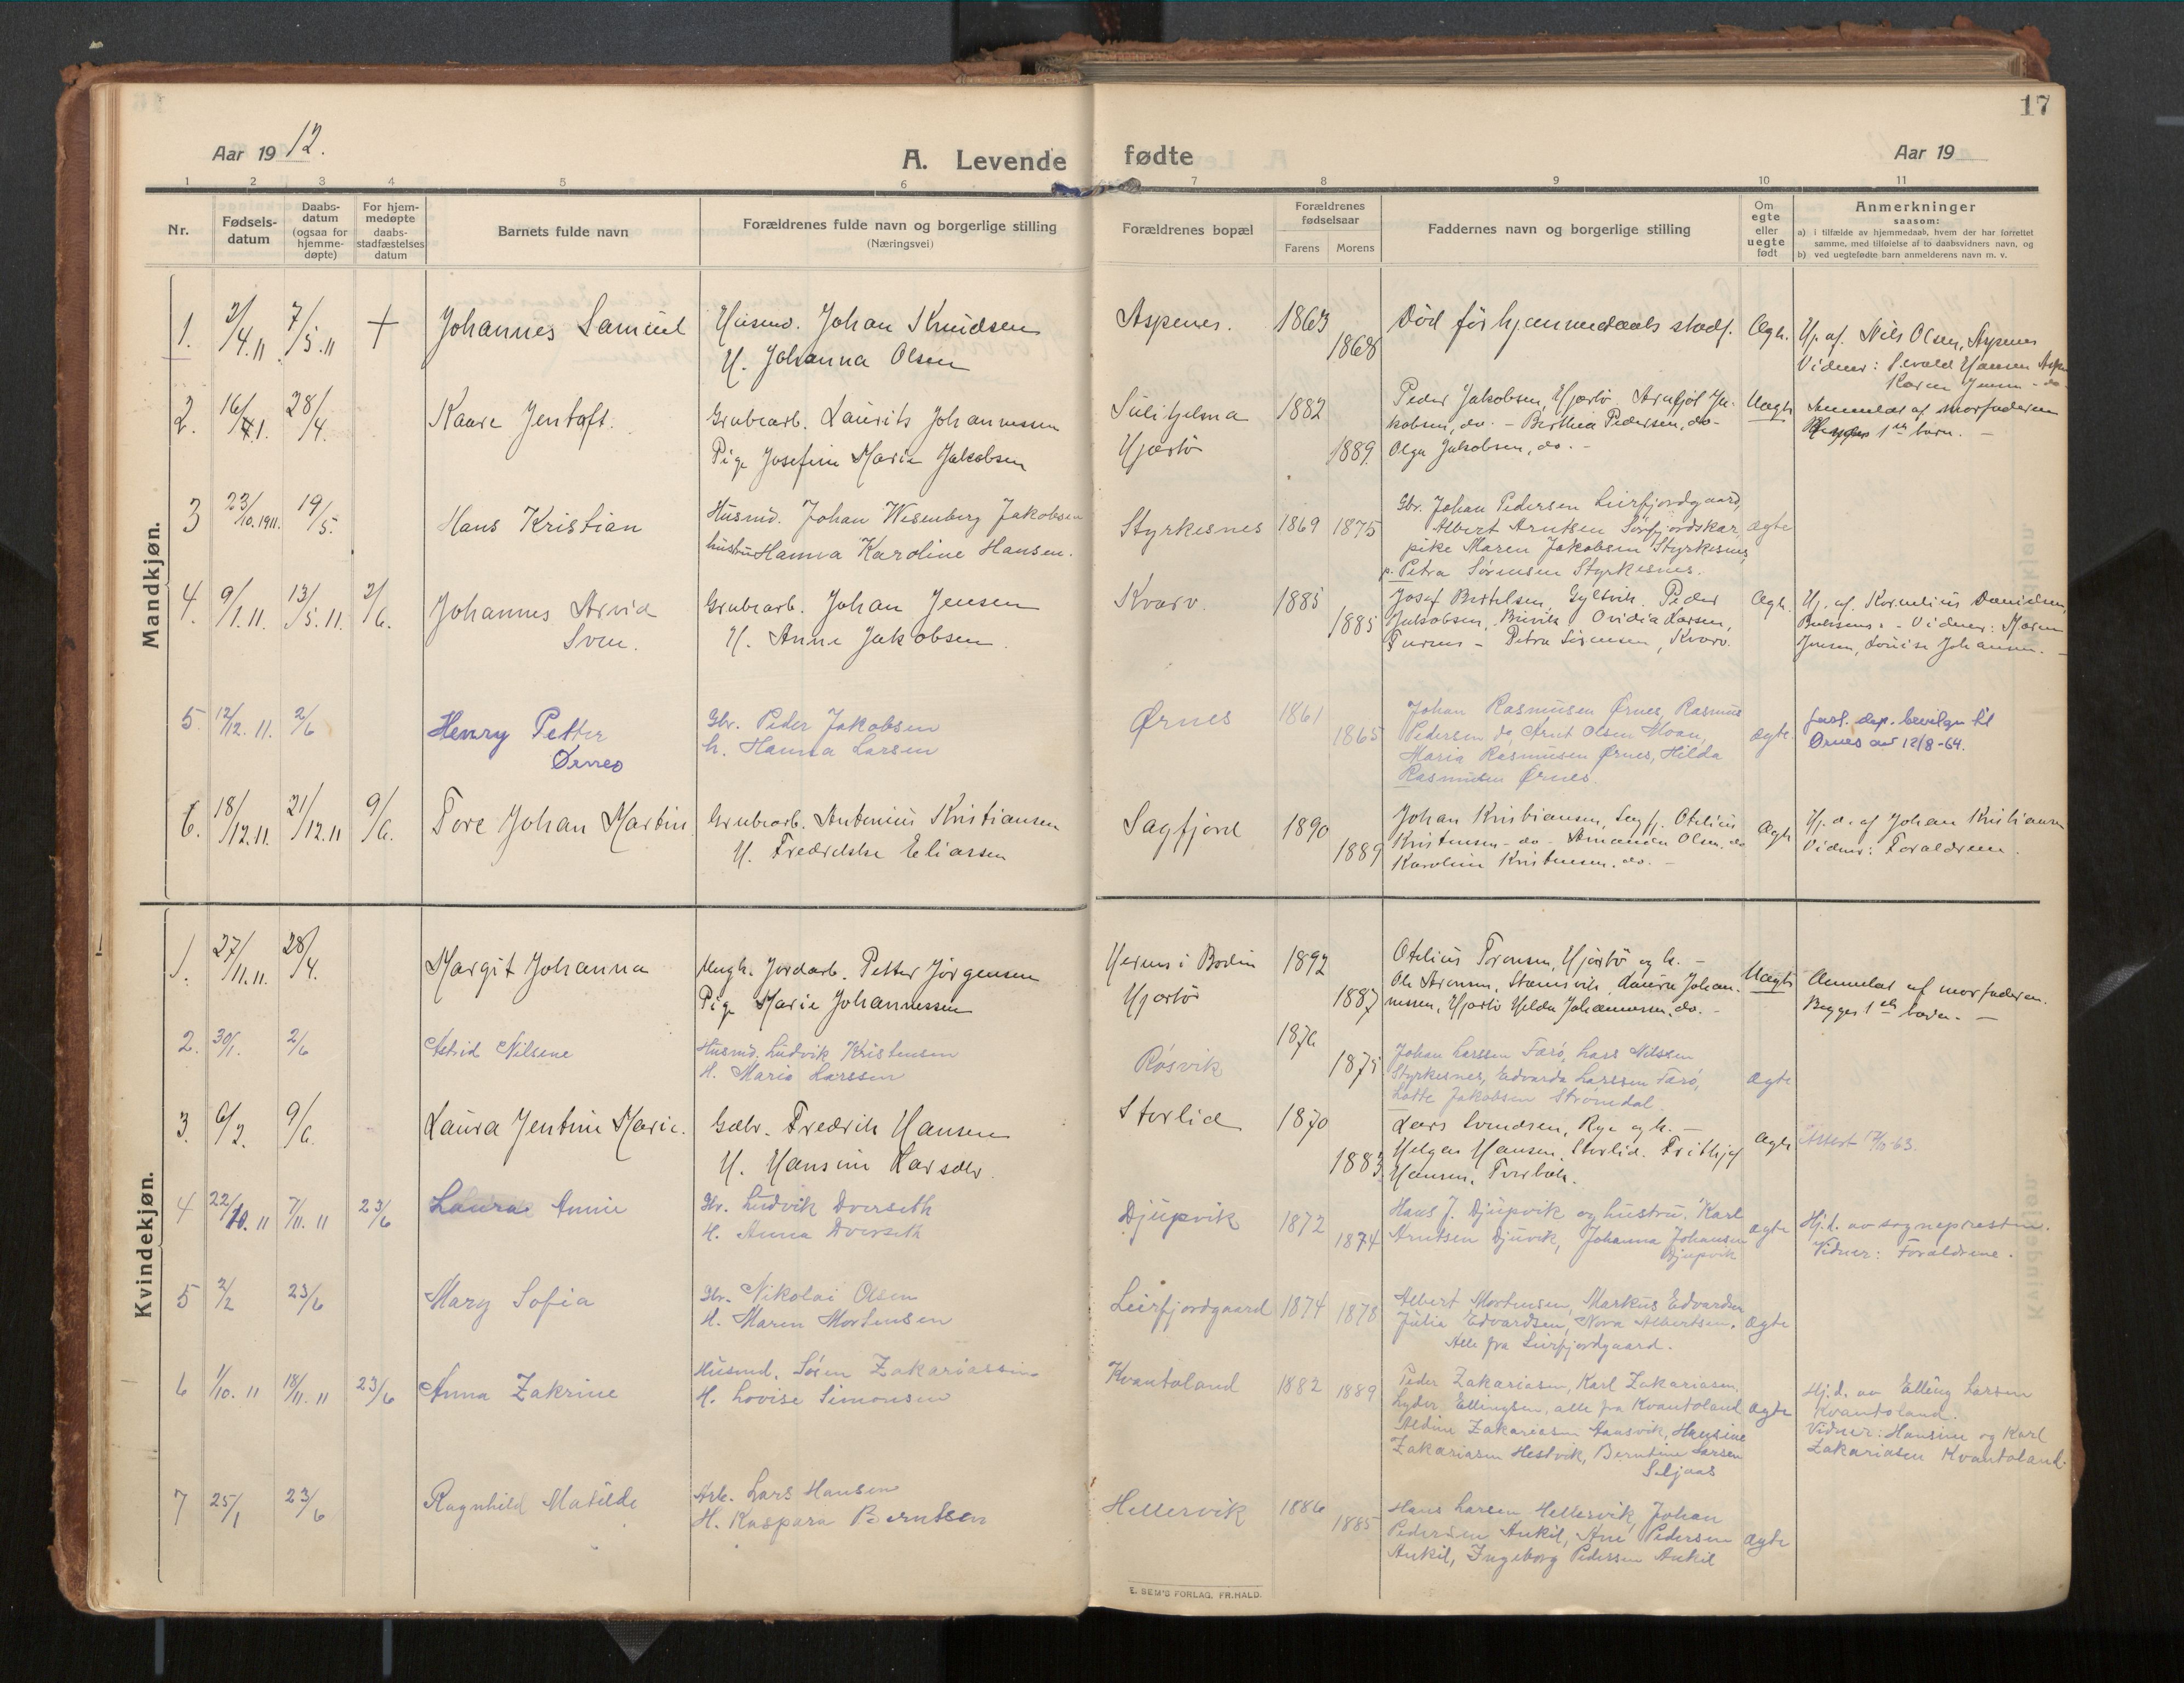 17
Aar 19 12.
A. Levende fødte
Aar 19
1 2 3 4 5 6 7 8 9 10 11
Nr.
Fødsels-
datum
Daabs-
datum
(ogsaa for
hjemme-
døpte)
For hjem-
medøpte
daabs-
stadfæstelses
datum
Barnets fulde navn
Forældrenes fulde navn og borgerlige stilling
(Næringsvei)
Forældrenes bopæl
Forældrenes
fødselsaar
Farens Morens
Faddernes navn og borgerlige stilling
Om
egte
eller
uegte
født
Anmerkninger
saasom:
a) i tilfælde av hjemmedaab, hvem der har forrettet
samme, med tilføielse af to daabsvidners navn, og
b) ved uegtefødte barn anmelderens navn m. v.
Mandkjøn.
1. 2/4.11 7/5.11 + Johannes Samuel
Husmd. Johan Knudsen
H. Johanna Olsen
Aspenes. 1863 1868
Død før hjemmedaabs stadf. Ægte.
Hj. af. Nils Olsen, Aspenes
Vidner: Sevald Hansen Aspn
Karen Jensen - do
2. 16/1. 28/4. Kaare Jentoft.
Grubearb. Laurits Johannessen
Pige Josefine Marie Jakobsen
Sulitjelma
Hjartö
1882 1889.
Peder Jakobsen, Hjartö. Arnfjot Ja-
kobsen, do. - Berthea Pedersen, do-
Olga Jakobsen, do. -
Uægte
Anmeldt af morfaderen
1ste barn. -
3 23/10.1911. 19/5. Hans Kristian
Husmd. Johan Wesenberg Jakobsen
hustru Hanna Karoline Hansen.
Styrkesnes 1869 1875
Gbr. Johan Pedersen Leirfjordgaard,
Albert Arntsen Sørfjordskar,
pike Maren Jakobsen Styrkesnes,
p. Petra Sørensen Styrkesnes.
ægte
4. 9/1.11. 13/5.11. 2/6. Johannes Arvid
Sven.
Grubearb. Johan Jensen
H. Anne Jakobsen.
Kvarv. 1885 1885
Josef Bertelsen, Gyltvik. Peder
Jakobsen, Brivik Ovidia Larsen,
Furnes - Petra Sörensen, Kvarv.
Ægte.
Hj. af. Kornelius Danielsen,
Vidner: Maren
Jensen, Louise Johansen. -
5 12/12.11. 2/6 Henry Petter
Ørnes
Gbr. Peder Jakobsen
h. Hanna Larsen
Ørnes 1861 1865
Johan Rasmusen Ørnes, Rasmus
Pedersen do, Arnt Olsen Moan,
Maria Rasmusen Ørnes, Hilda
Rasmusen Ørnes.
ægte.
Just. dep. bevilgn til
Ørnes av 12/8-64.
6. 18/12.11. 21/12.11 9/6. Tore Johan Martin
Grubearb. Antonius Kristiansen
H. Fredrikke Eliassen
Sagfjord 1890 1889
Johan Kristiansen, Sagfj. Otelius
Kristensen - do - Amanda Olsen, do
Karoline Kristensen. do. -
Ægte
Hj.d. af Johan Kristiansen
Vidner: Forældrene.
Kvindekjøn.
1. 27/11.11. 28/4. Margit Johanna
Ungk. Jordarb. Petter Jörgensen
Pige Marie Johannessen
Hernes i Bodin
Hjartö
1892 1887
Otelius Torensen, Hjartö og h. -
Ole Arensen, Stamsvik, Laura Johan-
nessen, Hjartö Helda Johannessen, do. -
Uægte
Anmeldt af morfaderen.
Begges 1ste barn. -
2. 30/1. 2/6 Astrid Nilsine
Husmd. Ludvik Kristensen
H. Marie Larssen
Røsvik 1876 1875
Johan Larssen Farø, Lars Nilssen
Styrkesnes, Edvarda Larssen Farø,
Lotte Jakobsen Strømdal.
ægte
3. 6/2. 9/6. Laura Jentine Marie.
Gdbr. Fredrik Hansen
H. Hansine Larsdtr.
Storlid 1870 1883.
Lars Svendsen, Rye og h. -
Helga Hansen, Storlid. Frithjof
Hansen,
Ægte
Attest 17/10-63.
4 22/10.11 7/11.11 23/6 Laura Annie
Gbr. Ludvik Dverseth
H. Anna Dverseth
Djupvik 1872 1874
Hans J. Djupvik og hustru, Karl
Arntsen Djuvik, Johanna Johansen
Djupvik
ægte
Hj.d. av sognepresten.
Vidner: Forældrene.
5 2/2 23/6 Mary Sofia
Gbr. Nikolai Olsen
H. Maren Mortensen
Leirfjordgaard 1874 1878
Albert Mortensen, Markus Edvardsen
Julia Edvardsen, Nora Albertsen,
Alle fra Leirfjordgaard.
ægte
6 1/10.11 18/11.11 23/6 Anna Zakrine
Husmd. Sören Zakariassen
H. Lovise Simonsen
Kvantoland 1882 1889
Peder Zakariasen, Karl Zakariasen,
Lyder Ellingsen, alle fra Kvantoland
Aldine Zakariasen Aansvik, Hansine
Zakariasen Hestvik, Berntine Larsen
Seljaas
ægte
Hj.d. av Elling Larsen
Kvantoland.
Vidner: Hansine og Karl
Zakariasen Kvantoland.
7 25/1 23/6 Ragnhild Matilde
Arb. Lars Hansen
H. Kaspara Berntsen
Hellervik 1886 1885
Hans Larsen Hellervik, Johan
Pedersen Ankil, Ane Pedersen
Ankil, Ingeborg Pedersen Ankil
ægte
E. SEM'S FORLAG, FR.HALD.